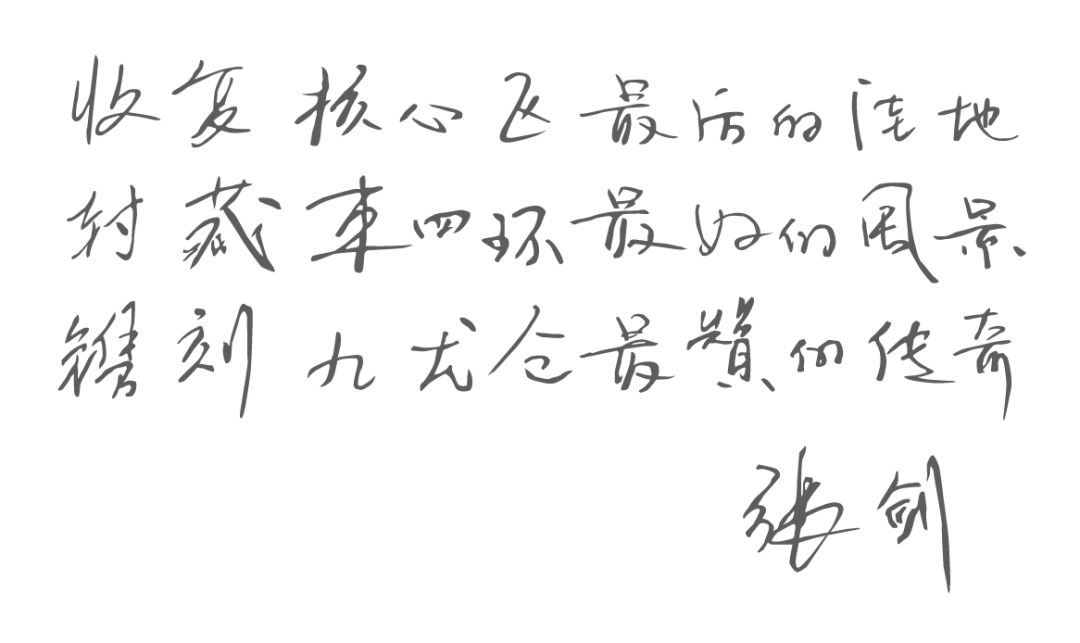 收复核心区最后的洼地
封藏東四环最好的風景
镌刻九龙仓最贊的传奇
張剑